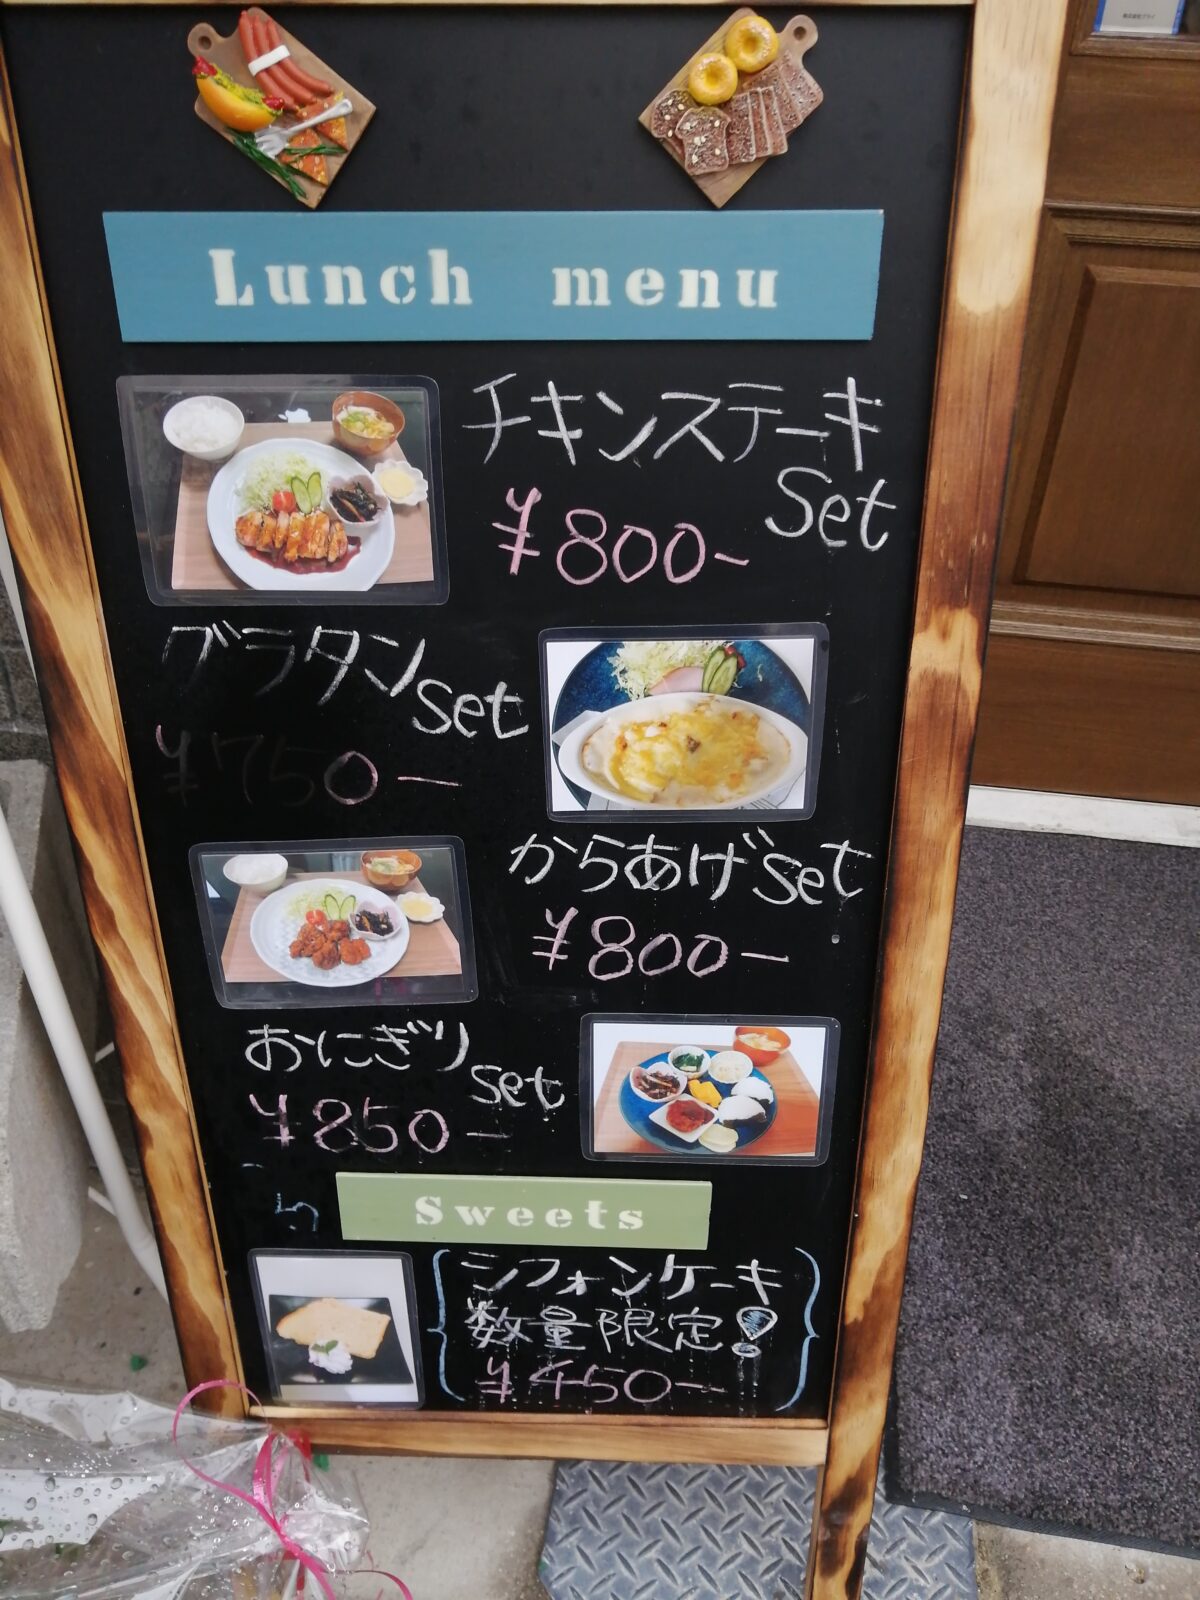 Lunch menu
チキンステーキ
set
¥800-
グラタンset
¥750-
からあげset
¥800-
おにぎり
set
¥850-
Sweets
シフォンケーキ
数量限定!
¥450-